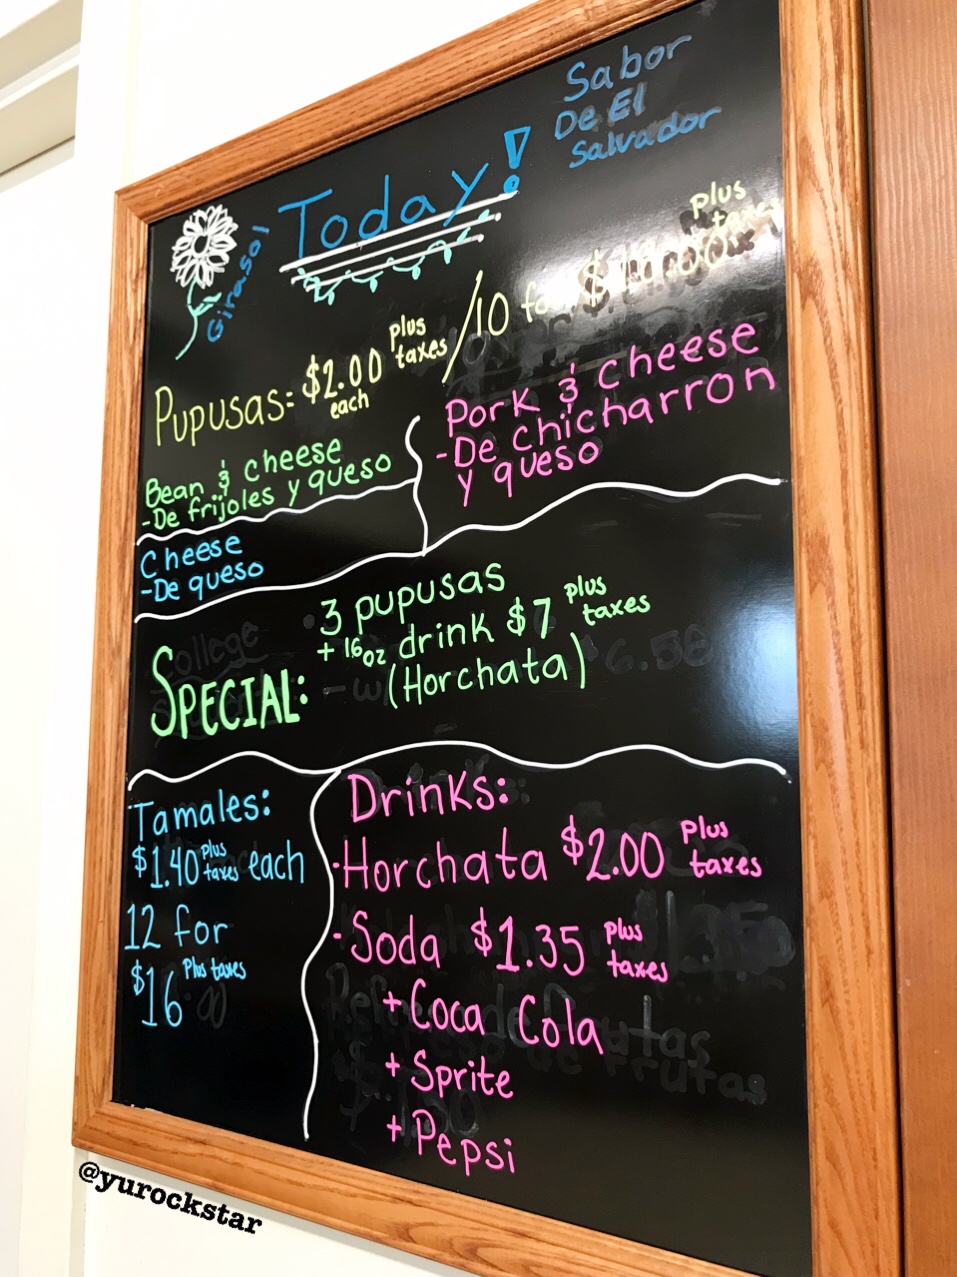 Sabor
De El
Salvador
Today!
Girasol
Pupusas: $2.00 each plus taxes / 10 for $ plus taxes
Bean & Cheese
-De frijoles y queso
Pork & Cheese
-De chicharron
y queso
Cheese
-De queso
SPECIAL:
3 pupusas
+ 16oz drink $7 plus taxes
(Horchata)
Tamales:
$1.40 plus taxes each
12 for
$16 Plus taxes
Drinks:
-Horchata $2.00 plus taxes
-Soda $1.35 plus taxes
+Coca Cola
+Sprite
+Pepsi
@yurockstar